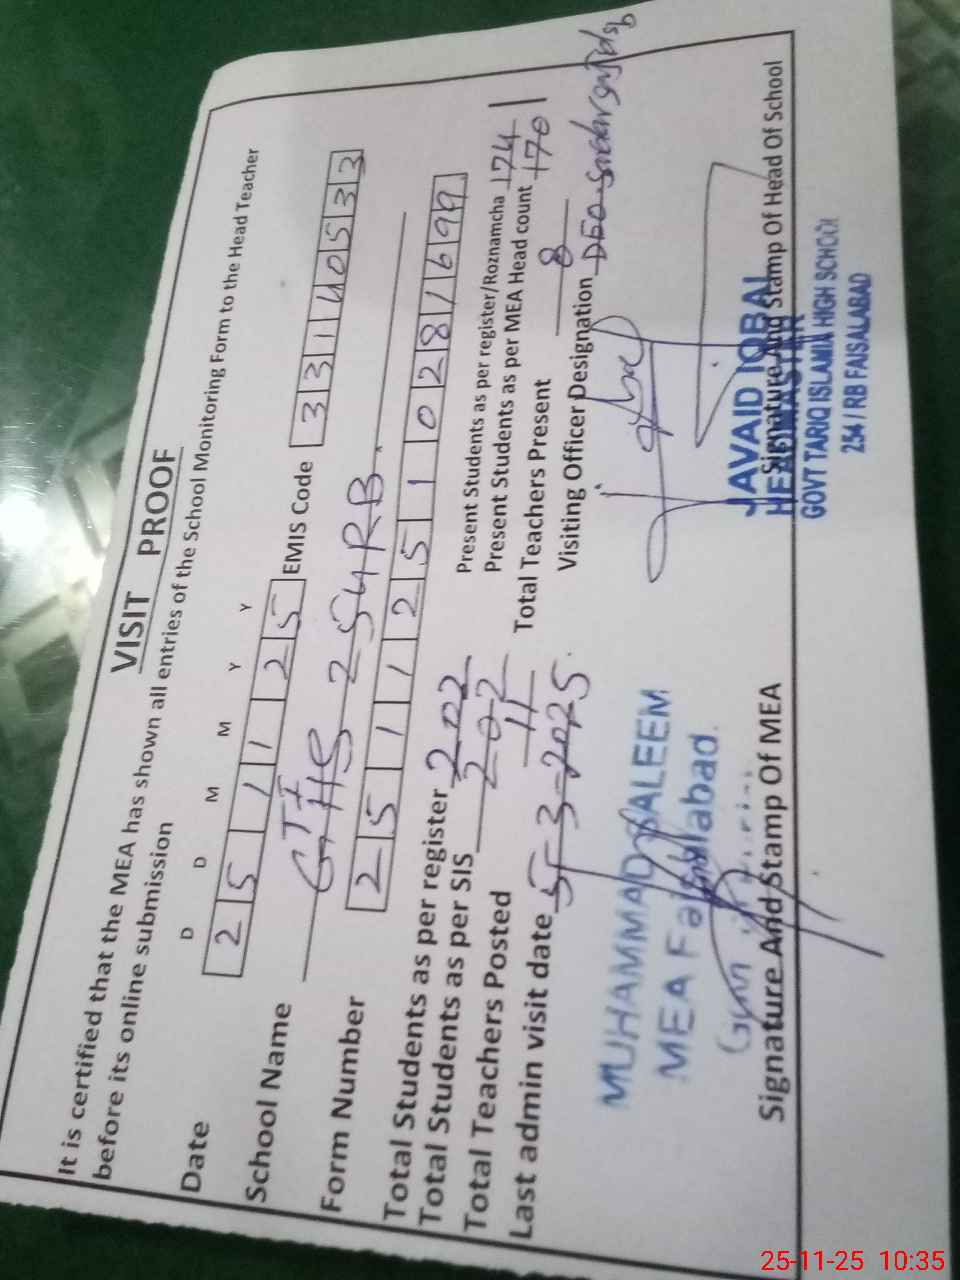 VISIT PROOF
It is certified that the MEA has shown all entries of the School Monitoring Form to the Head Teacher
before its online submission
D D M M Y Y
Date 2 5 1 1 2 5 EMIS Code 3 3 1 4 0 5 3 3
School Name GTIHS 254 RB.
Form Number 2 5 1 1 2 5 1 0 2 8 1 6 9 9
Total Students as per register 202 Present Students as per register/Roznamcha 174
Total Students as per SIS 202 Present Students as per MEA Head count 170
Total Teachers Posted 11 Total Teachers Present 8
Last admin visit date 5-3-2025. Visiting Officer Designation DEO
MUHAMMAD SALEEM
MEA Faisalabad.
JAVAID IQBAL
HEADMASTER
Signature And Stamp Of MEA Signature And Stamp Of Head Of School
GOVT TARIQ ISLAMIA HIGH SCHOOL
254 / RB FAISALABAD
25-11-25 10:35